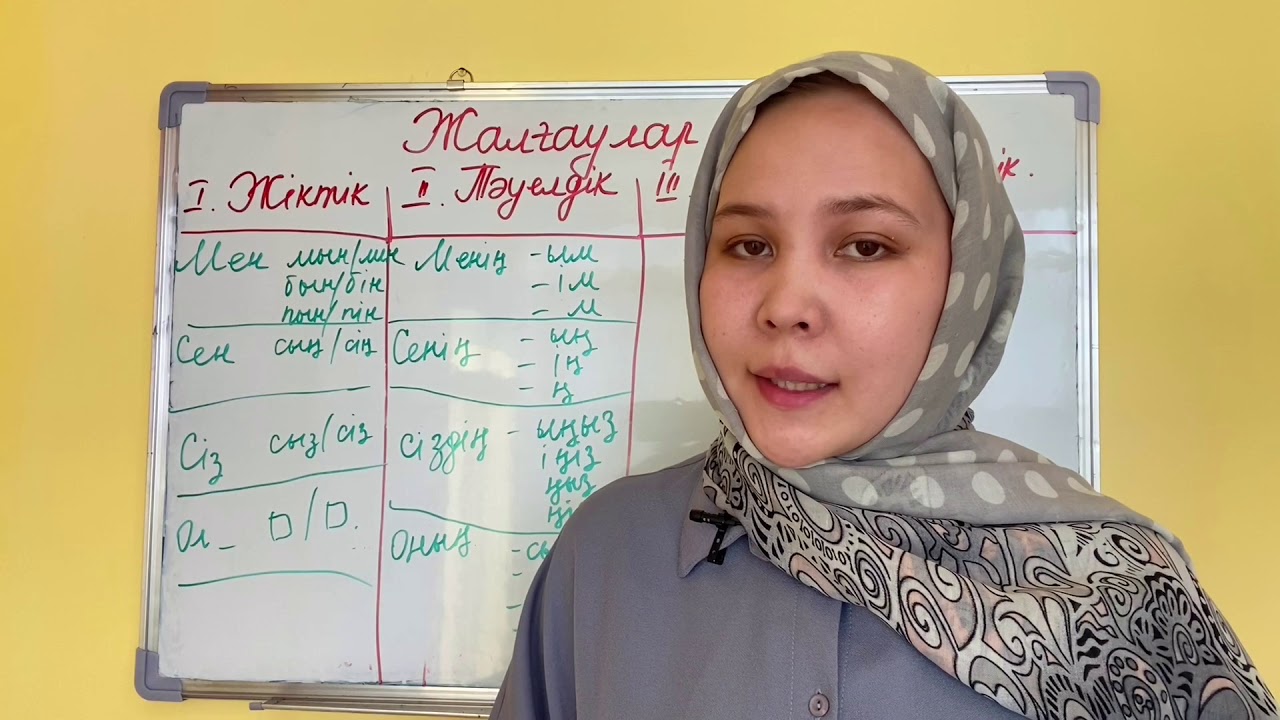 Жалғаулар
I. Жіктік
II. Тәуелдік
III
ік.
Мен мын/мін
бын/бін
пын/пін
Сен сың/сің
Сіз сыз/сіз
Ол –
Менің -ым
-ім
- м
Сенің - ың
- ің
- ң
Сіздің - ыңыз
іңіз
ңыз
ңі
Оның -сы